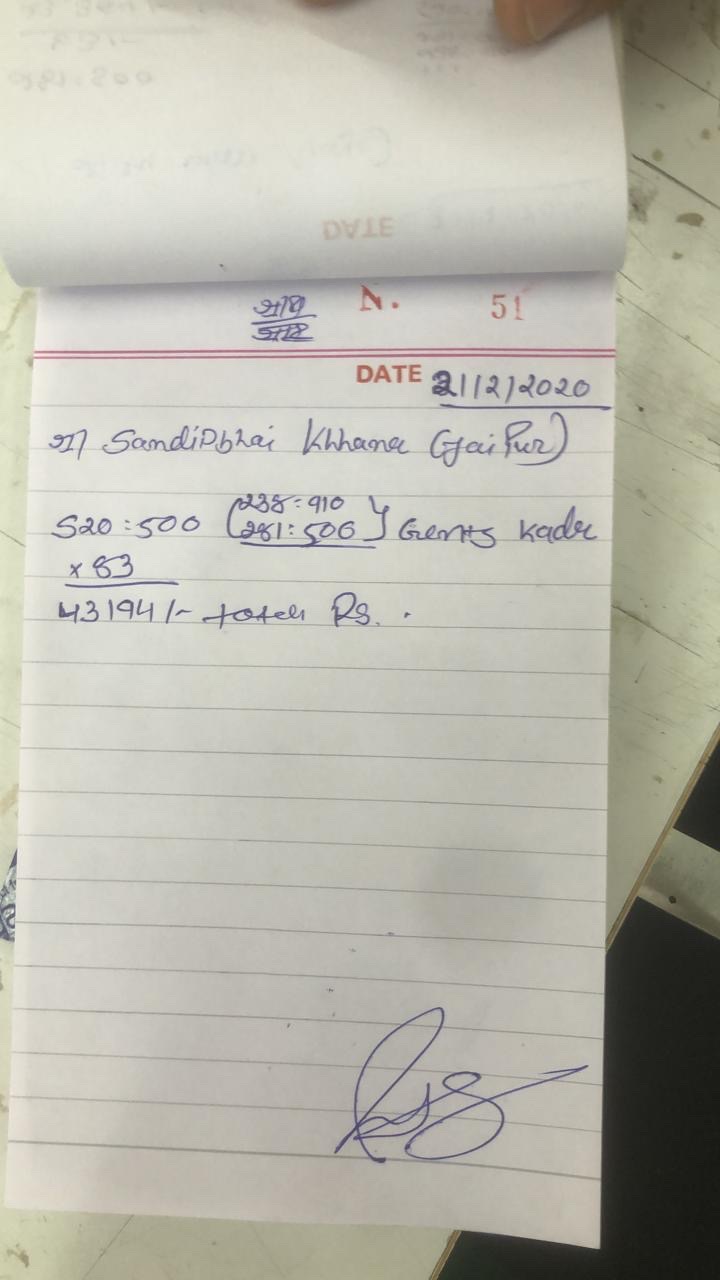 N. 51
DATE 21/2/2020
શ્રી Sandipbhai Khhana (Jaipur)
520:500 (238:910
281:506) Gents kade
x 83
43194/- total Rs.